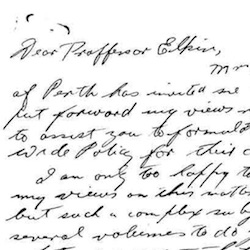 Dear Proffessor Elkin,
Mr
of Perth has invited me
put forward my views
to assist you to formul
wide Policy for this
I am only too happy t
my views on this mat
but such a complex sub
several volumes to do